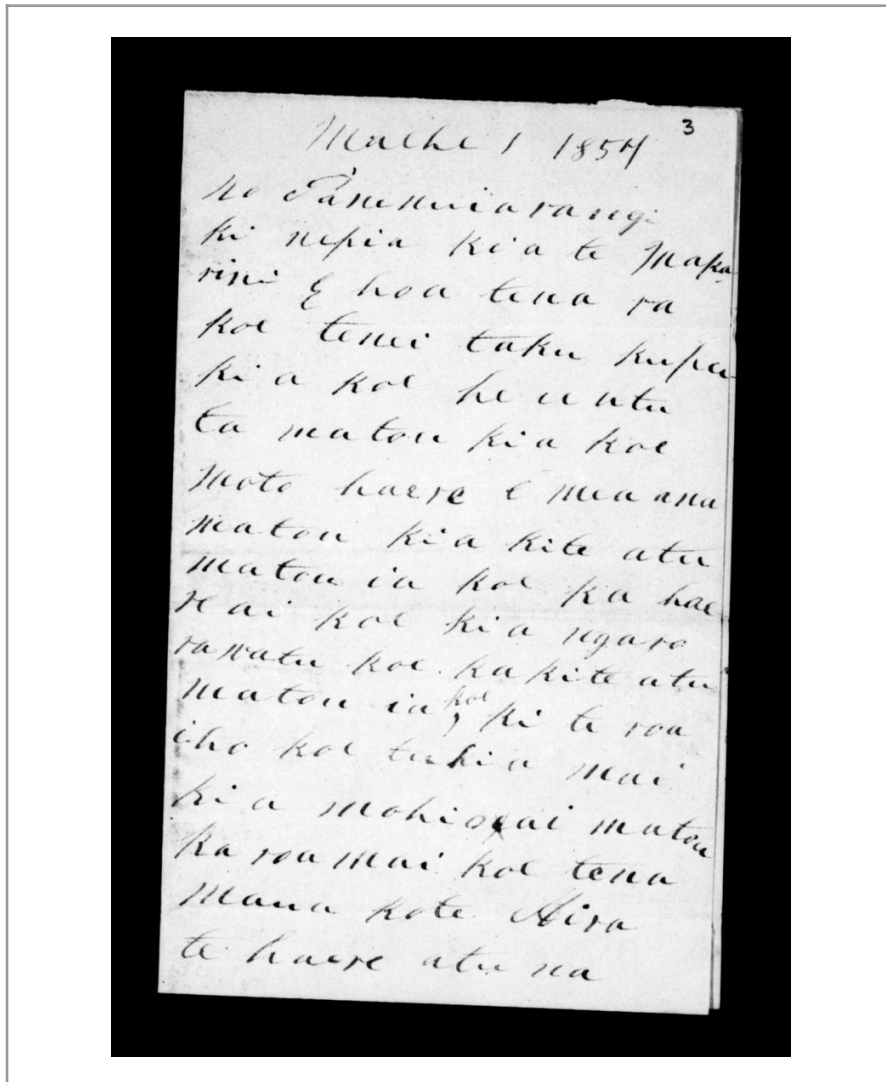 3
Maehe 1 1857
no Panemuiarangi
ki nepia kia te Maka
rini E hoa tena ra
koe tenei taku kupu
ki a koe he ui atu
ta matou kia koe
moto haere e mea ana
matou kia kite atu
matou ia koe ka hae
re ai koe kia ngaro
rawatu koe kakite atu
matou ia koe, ki te roa
iho koe tuhia mai
ki a mohio ai matou
ka roa mai koe tena
mana kote Aira
te haere atu na